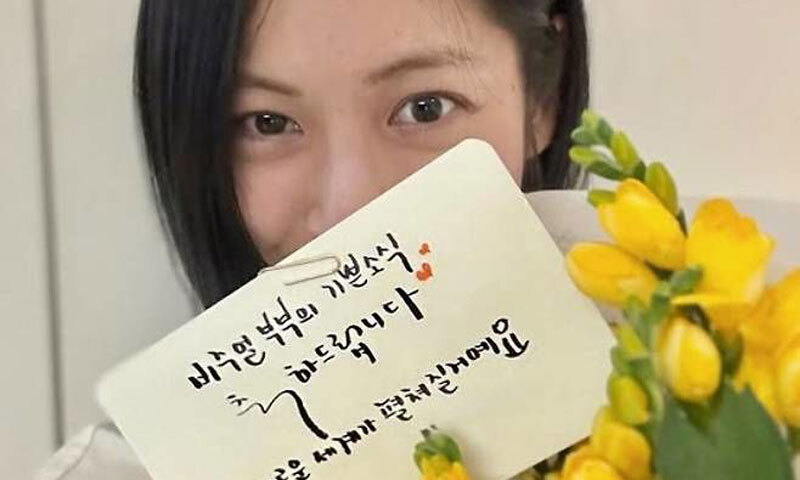 비주얼부부의 기쁜소식
축하드립니다
로운 세계가 펼쳐질거예요